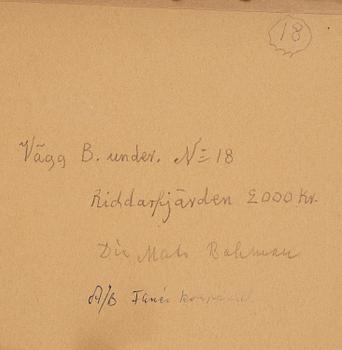 18
Vägg B. under. No 18
Riddarfjärden 2000 Kr.
Dir Mats
A/B